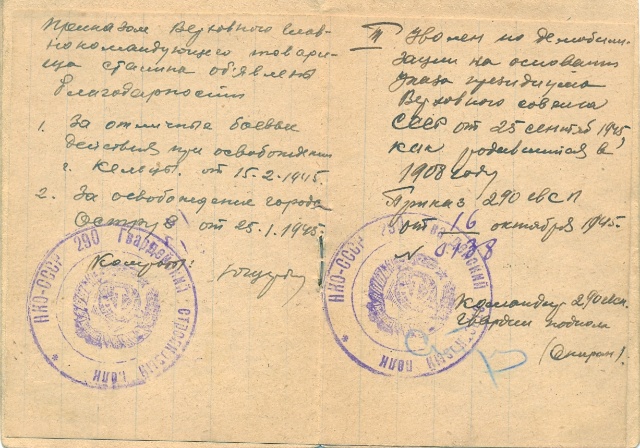 Приказом Верховного глав-
нокомандующего товари-
ща Сталина объявлены
благодарности
1. За отличные боевые
действия при освобождении
г. Кельцы. от 15.2.1945.
2. За освобождение города
от 25.1.1945.
НКО-СССР 290 Гвардейский стрелковый полк
III Уволен по демобили-
зации на основании
указа президиума
Верховного совета
СССР от 25 сентяб 1945
как родившийся в
1908 году
Приказ 290 гвсп
от 16 октября 1945.
N
Командир 290 гвсп.
гвардии подполк
НКО-СССР 290 Гвардейский стрелковый полк